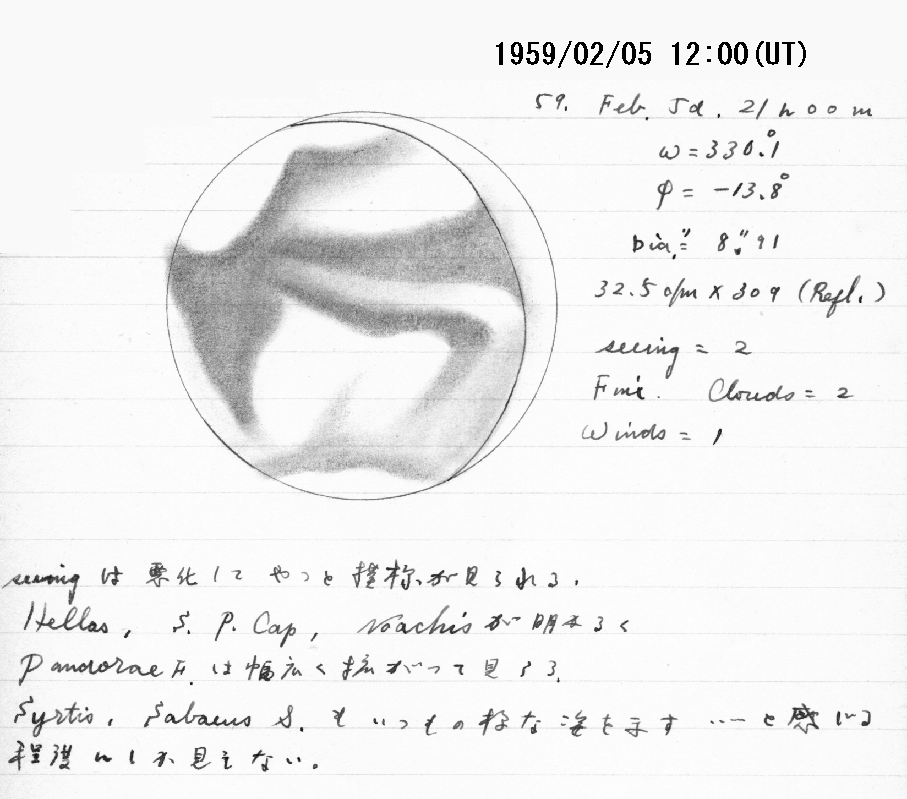 1959/02/05 12:00(UT)
59. Feb. 5d. 21h00m
ω=330.°1
φ= -13.8°
Dia.= 8."91
32.5 c/m × 309 (Refl.)
seeing = 2
Fmi. Clouds = 2
Winds = 1
seeing は 悪化して やっと 模様が見られる.
Hellas, S. P. Cap, Noachis が 明るく
Pandorae F. は幅広く拡がって見える.
Syrtis, Sabaeus S. も いつもの様な姿を示す ……と感じる
程度にしか見えない.